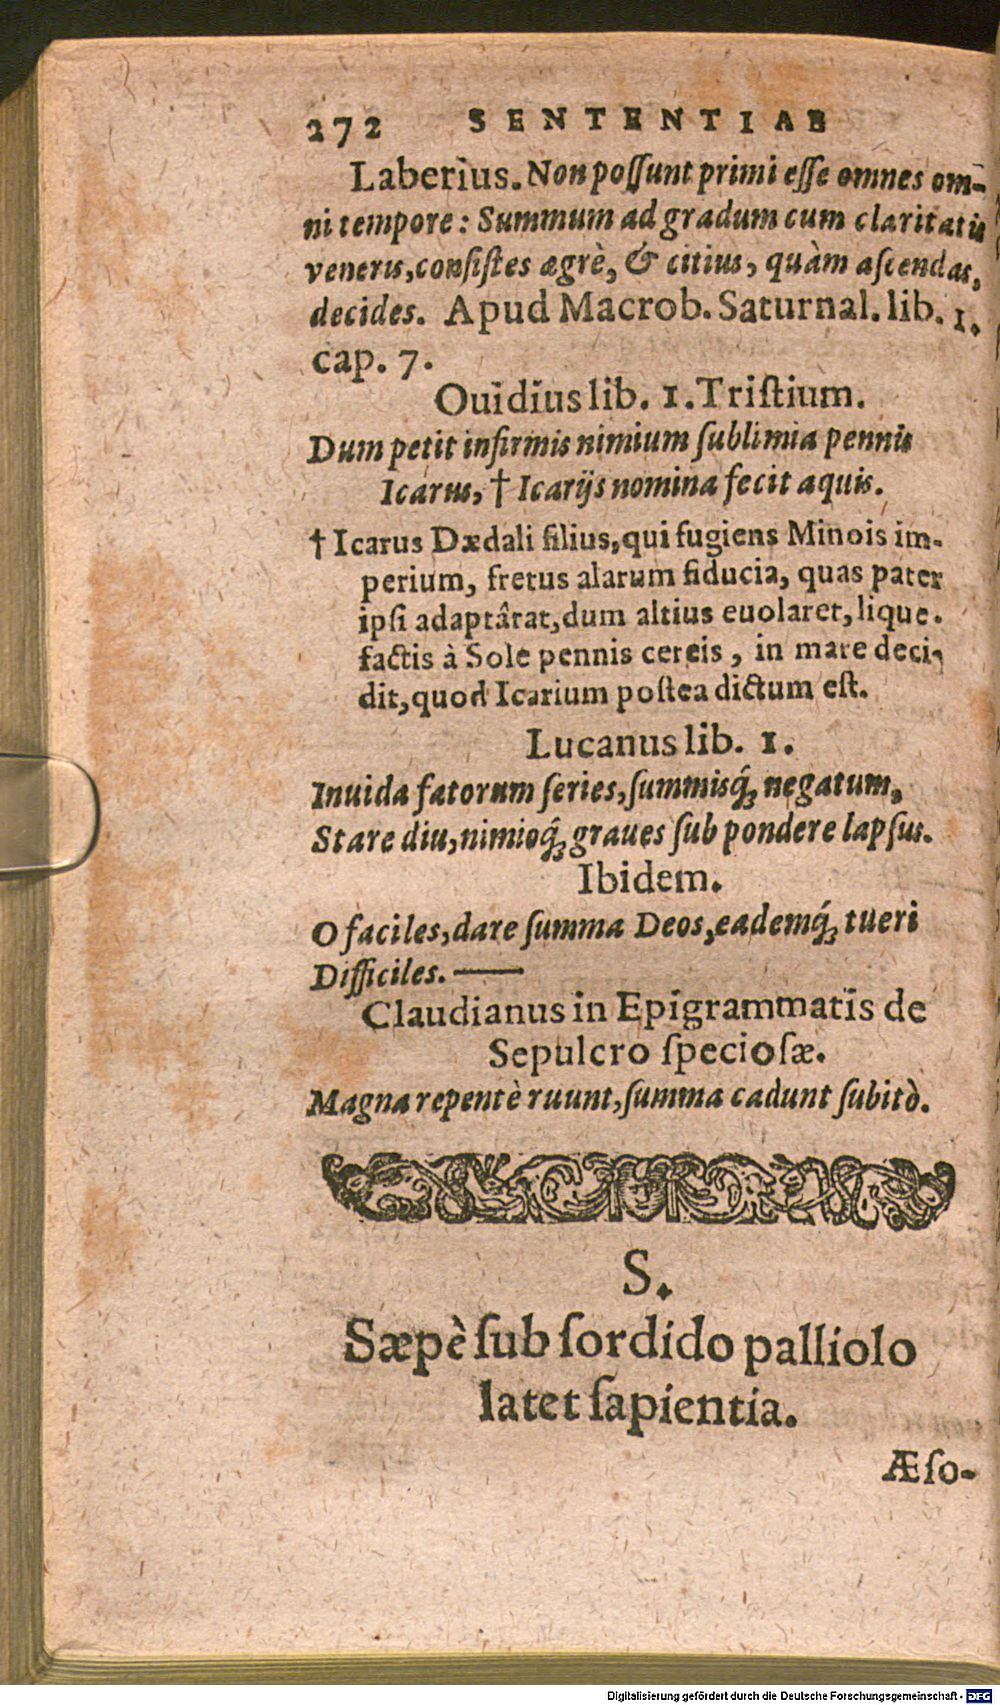 272 SENTENTIAE
Laberius. Non poſſunt primi eſſe omnes om-
ni tempore: Summum ad gradum cum claritatis
veneris, conſiſtes ægrè, & citius, quàm aſcendas,
decides. Apud Macrob. Saturnal. lib. 1.
cap. 7.
Ouidius lib. 1. Triſtium.
Dum petit infirmis nimium ſublimia pennis
Icarus, † Icarijs nomina fecit aquis.
† Icarus Dædali filius, qui fugiens Minois im-
perium, fretus alarum fiducia, quas pater
ipſi adaptârat, dum altius euolaret, lique-
factis à Sole pennis cereis, in mare deci-
dit, quod Icarium poſtea dictum eſt.
Lucanus lib. 1.
Inuida fatorum ſeries, ſummisq́; negatum,
Stare diu, nimioq́; graues ſub pondere lapſus.
Ibidem.
O faciles, dare ſumma Deos, eademq́; tueri
Difficiles. —
Claudianus in Epigrammatis de
Sepulcro ſpecioſæ.
Magna repentè ruunt, ſumma cadunt ſubitò.
S.
Sæpè ſub ſordido palliolo
latet ſapientia.
Æſo-
Digitalisierung gefördert durch die Deutsche Forschungsgemeinschaft - DFG